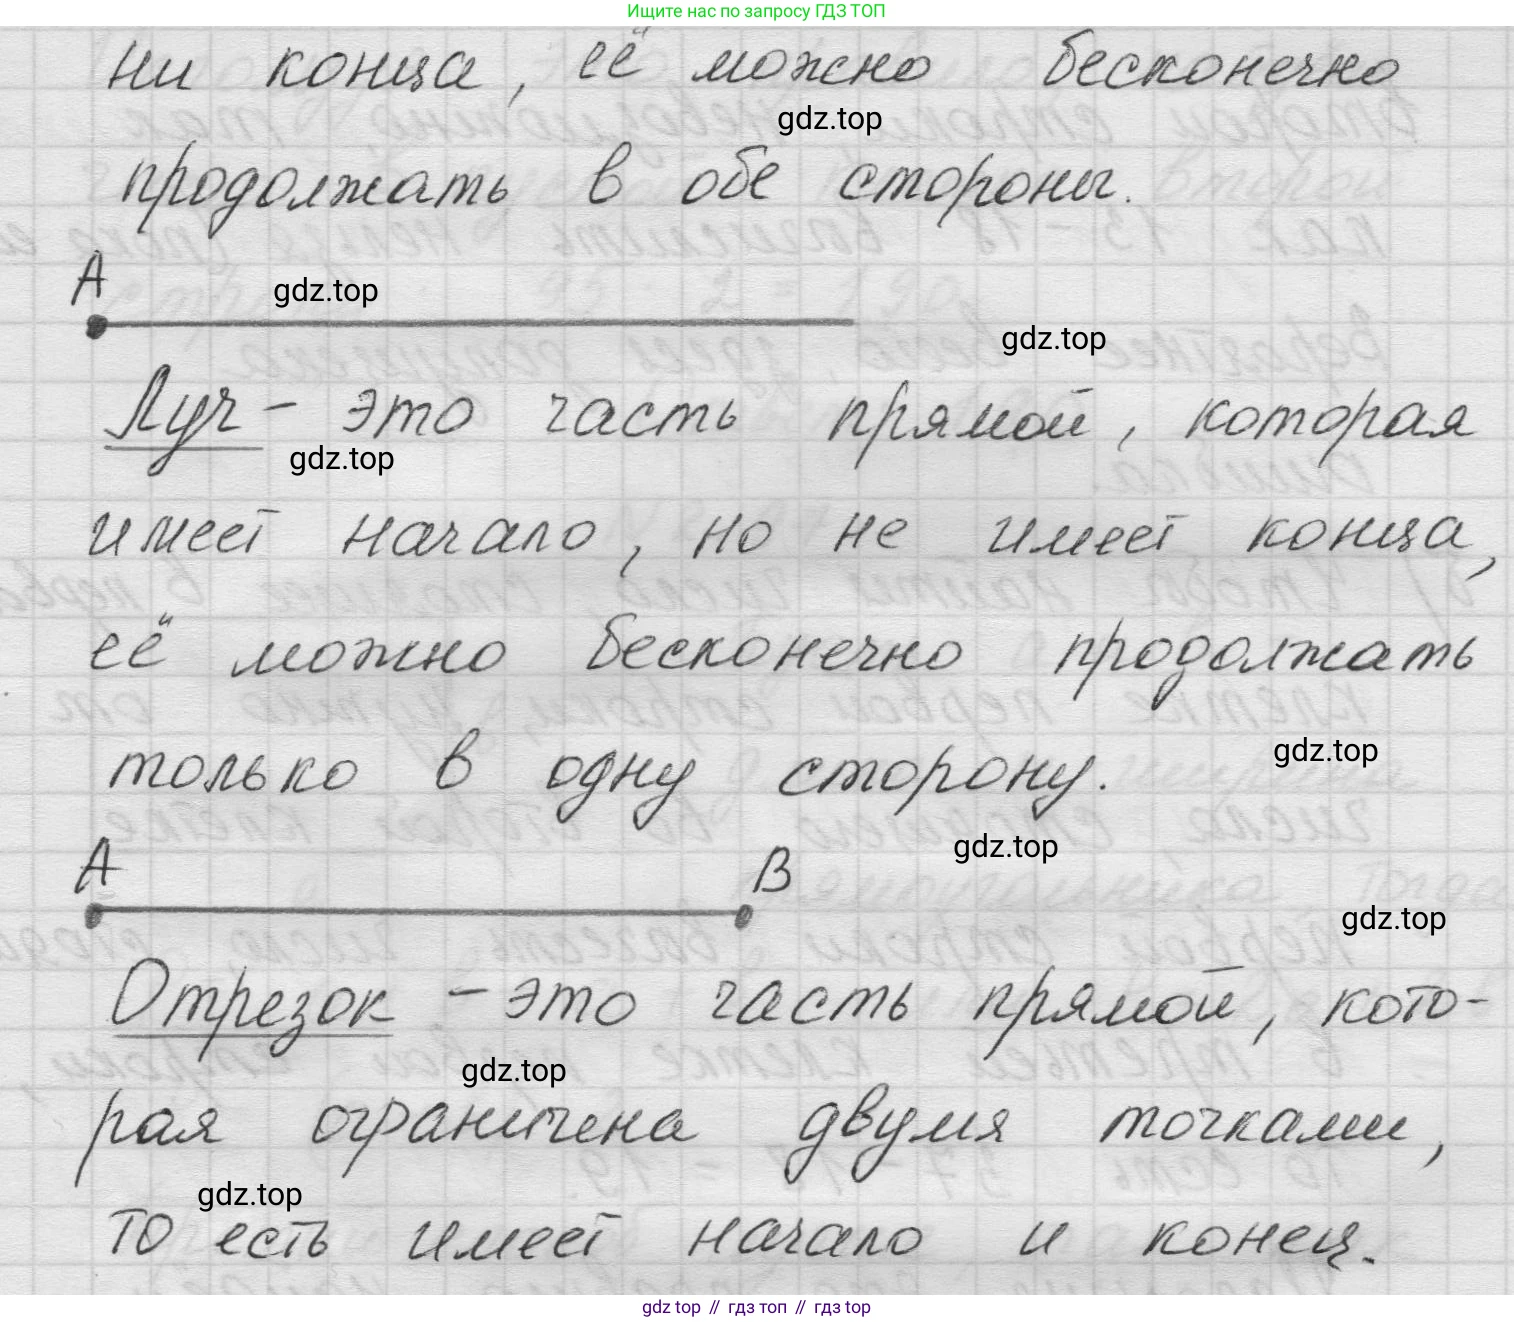 Ищите нас по запросу ГДЗ ТОП
ни конца, её можно бесконечно
gdz.top
продолжать в обе стороны.
A
gdz.top
gdz.top
Луч – это часть прямой, которая
gdz.top
имеет начало, но не имеет конца,
её можно бесконечно продолжать
только в одну сторону.
gdz.top
A
B
gdz.top
gdz.top
Отрезок – это часть прямой, кото-
gdz.top
рая ограничена двумя точками,
gdz.top
то есть имеет начало и конец.
gdz top // гдз топ // гдз top